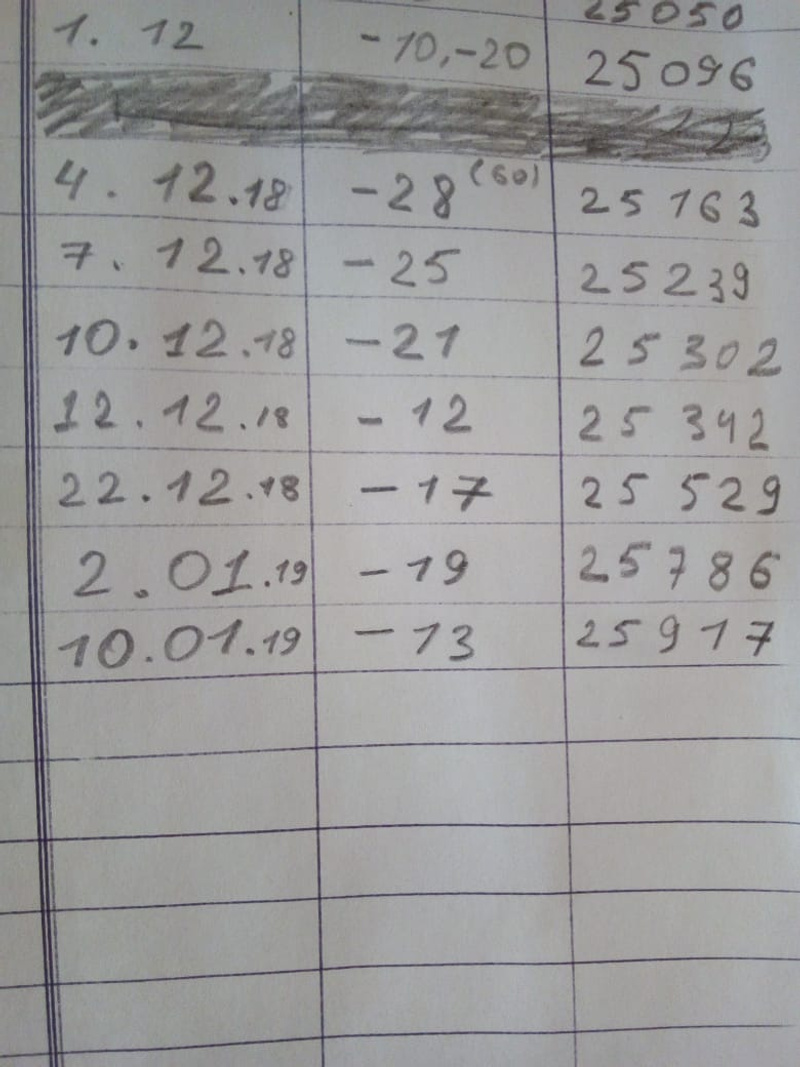 25050
1. 12 -10,-20 25096
4. 12.18 -28 (60) 25 163
7. 12.18 -25 25239
10. 12.18 -21 25 302
12. 12.18 - 12 25 342
22.12.18 -17 25 529
2.01.19 -19 25786
10.01.19 -13 25917